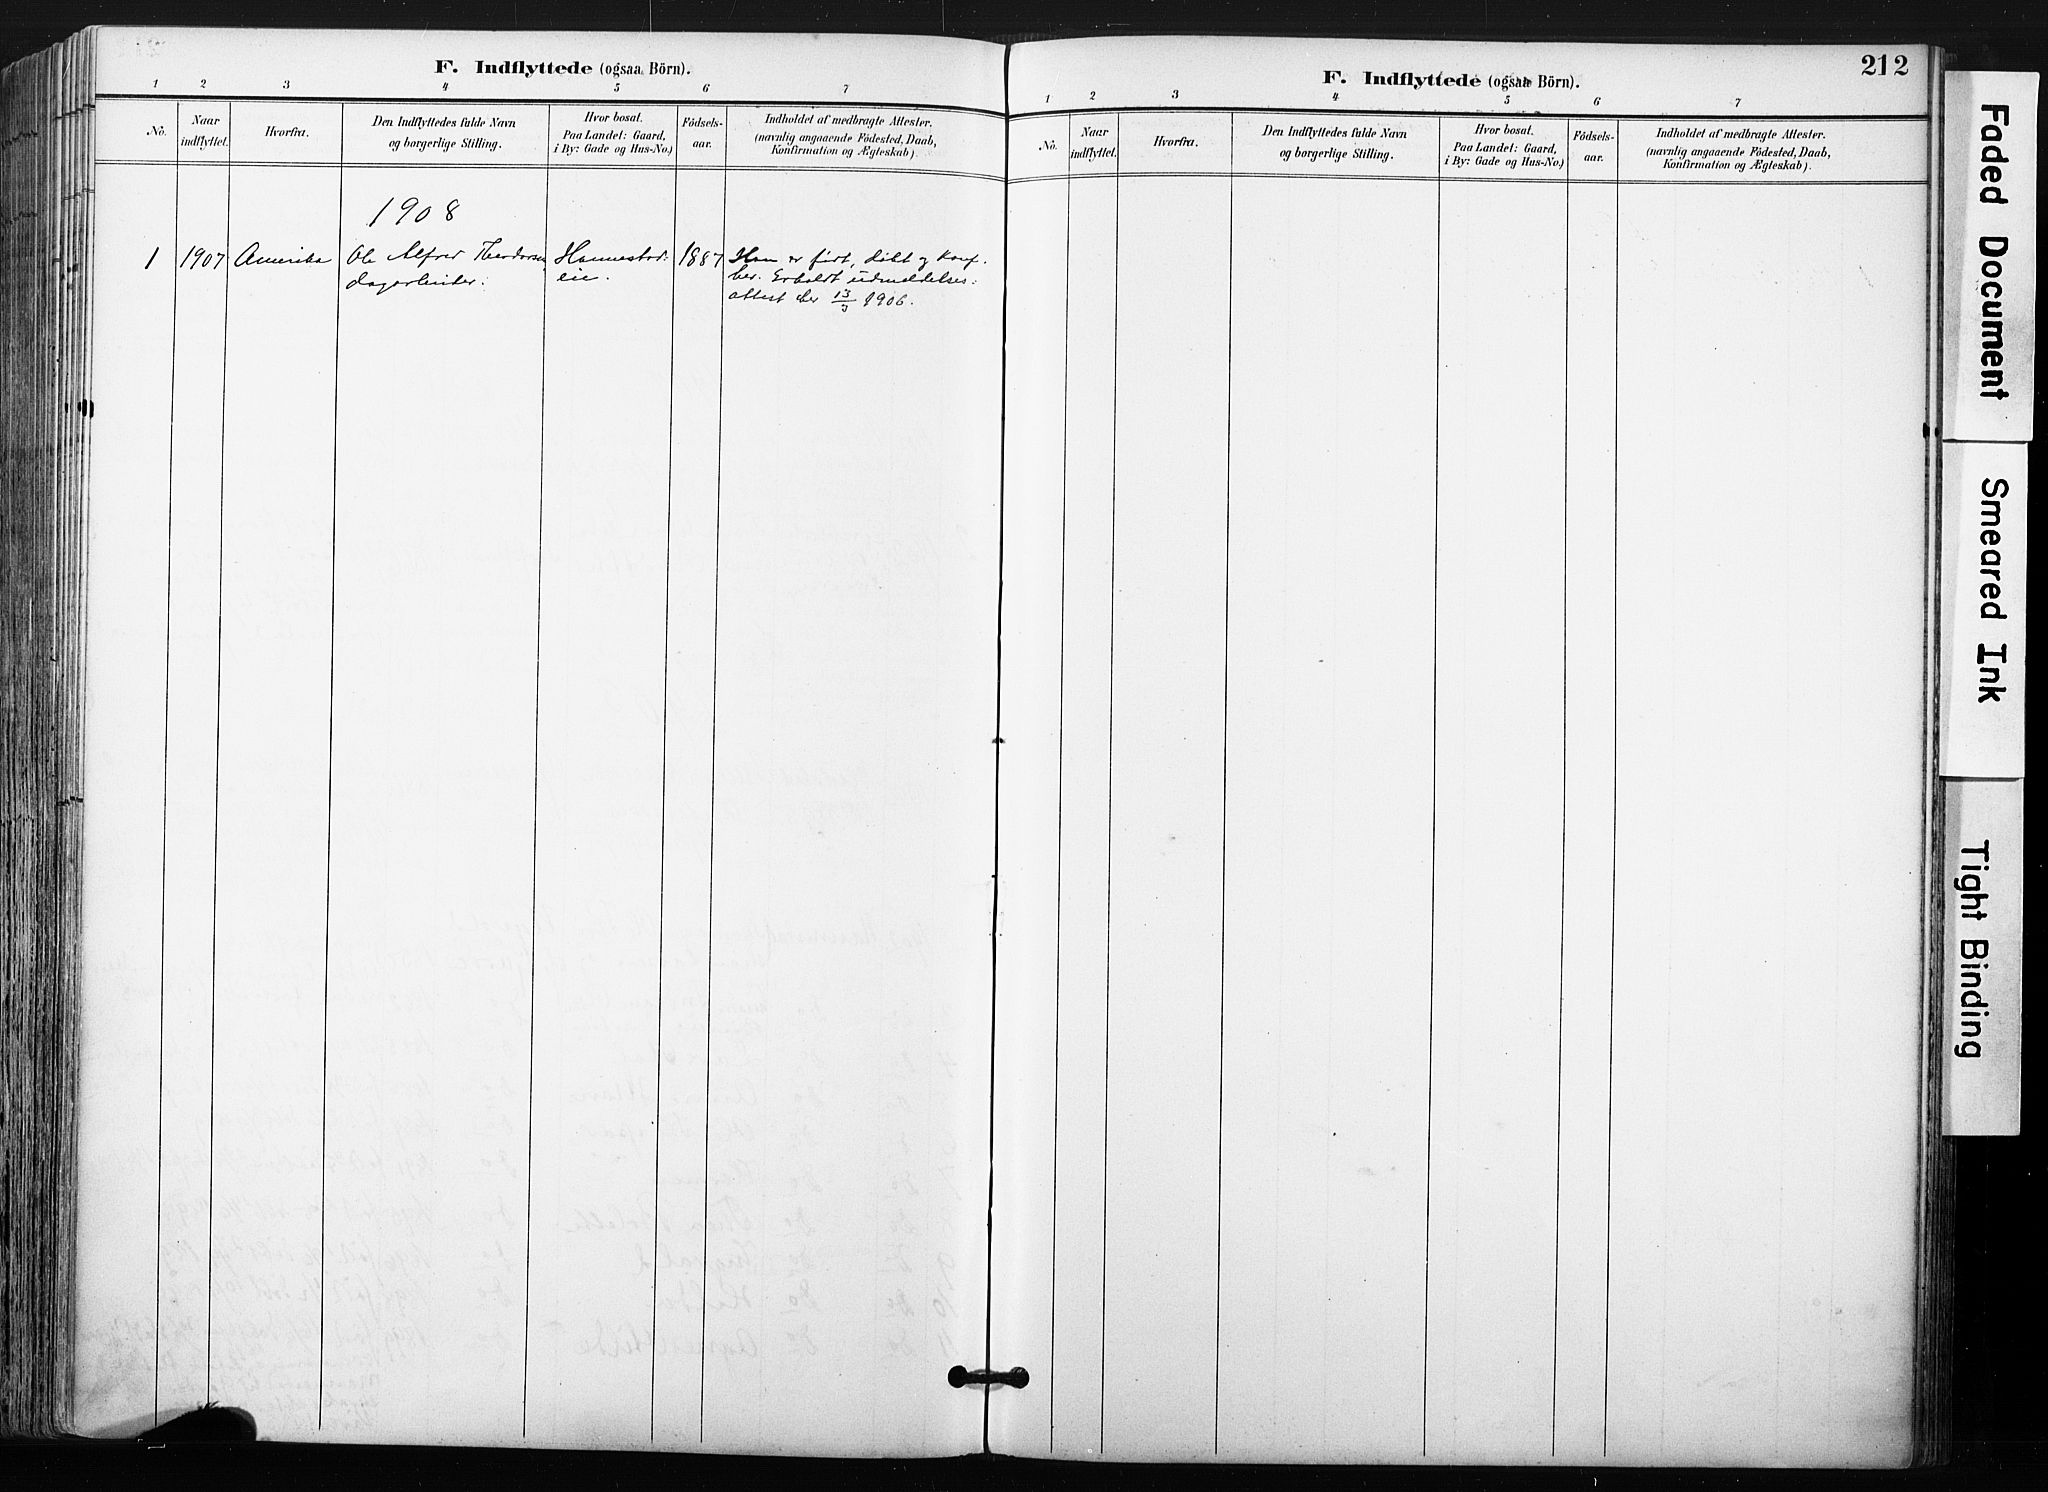 F. Indflyttede (ogsaa Börn).
1 2 3 4 5 6 7
No.
Naar
indflyttet.
Hvorfra.
Den Indflyttedes fulde Navn
og borgerlige Stilling.
Hvor bosat.
Paa Landet: Gaard,
i By: Gade og Hus-No.)
Födsels-
aar.
Indholdet af medbragte Attester.
(navnlig angaaende Födested, Daab,
Konfirmation og Ægteskab).
1908
1 1907 Amerika
Ole Alfred
dagarbeider.
Hannestad:
eie.
1887
Han er født, døbt og konf.
her. Erholdt udmeldelses:
attest her 13/3 1906.
212
F. Indflyttede (ogsaa Börn).
1 2 3 4 5 6 7
No.
Naar
indflyttet.
Hvorfra.
Den Indflyttedes fulde Navn
og borgerlige Stilling.
Hvor bosat.
Paa Landet: Gaard,
i By: Gade og Hus-No.)
Födsels-
aar.
Indholdet af medbragte Attester.
(navnlig angaaende Födested, Daab,
Konfirmation og Ægteskab).
Faded Document
Smeared Ink
Tight Binding